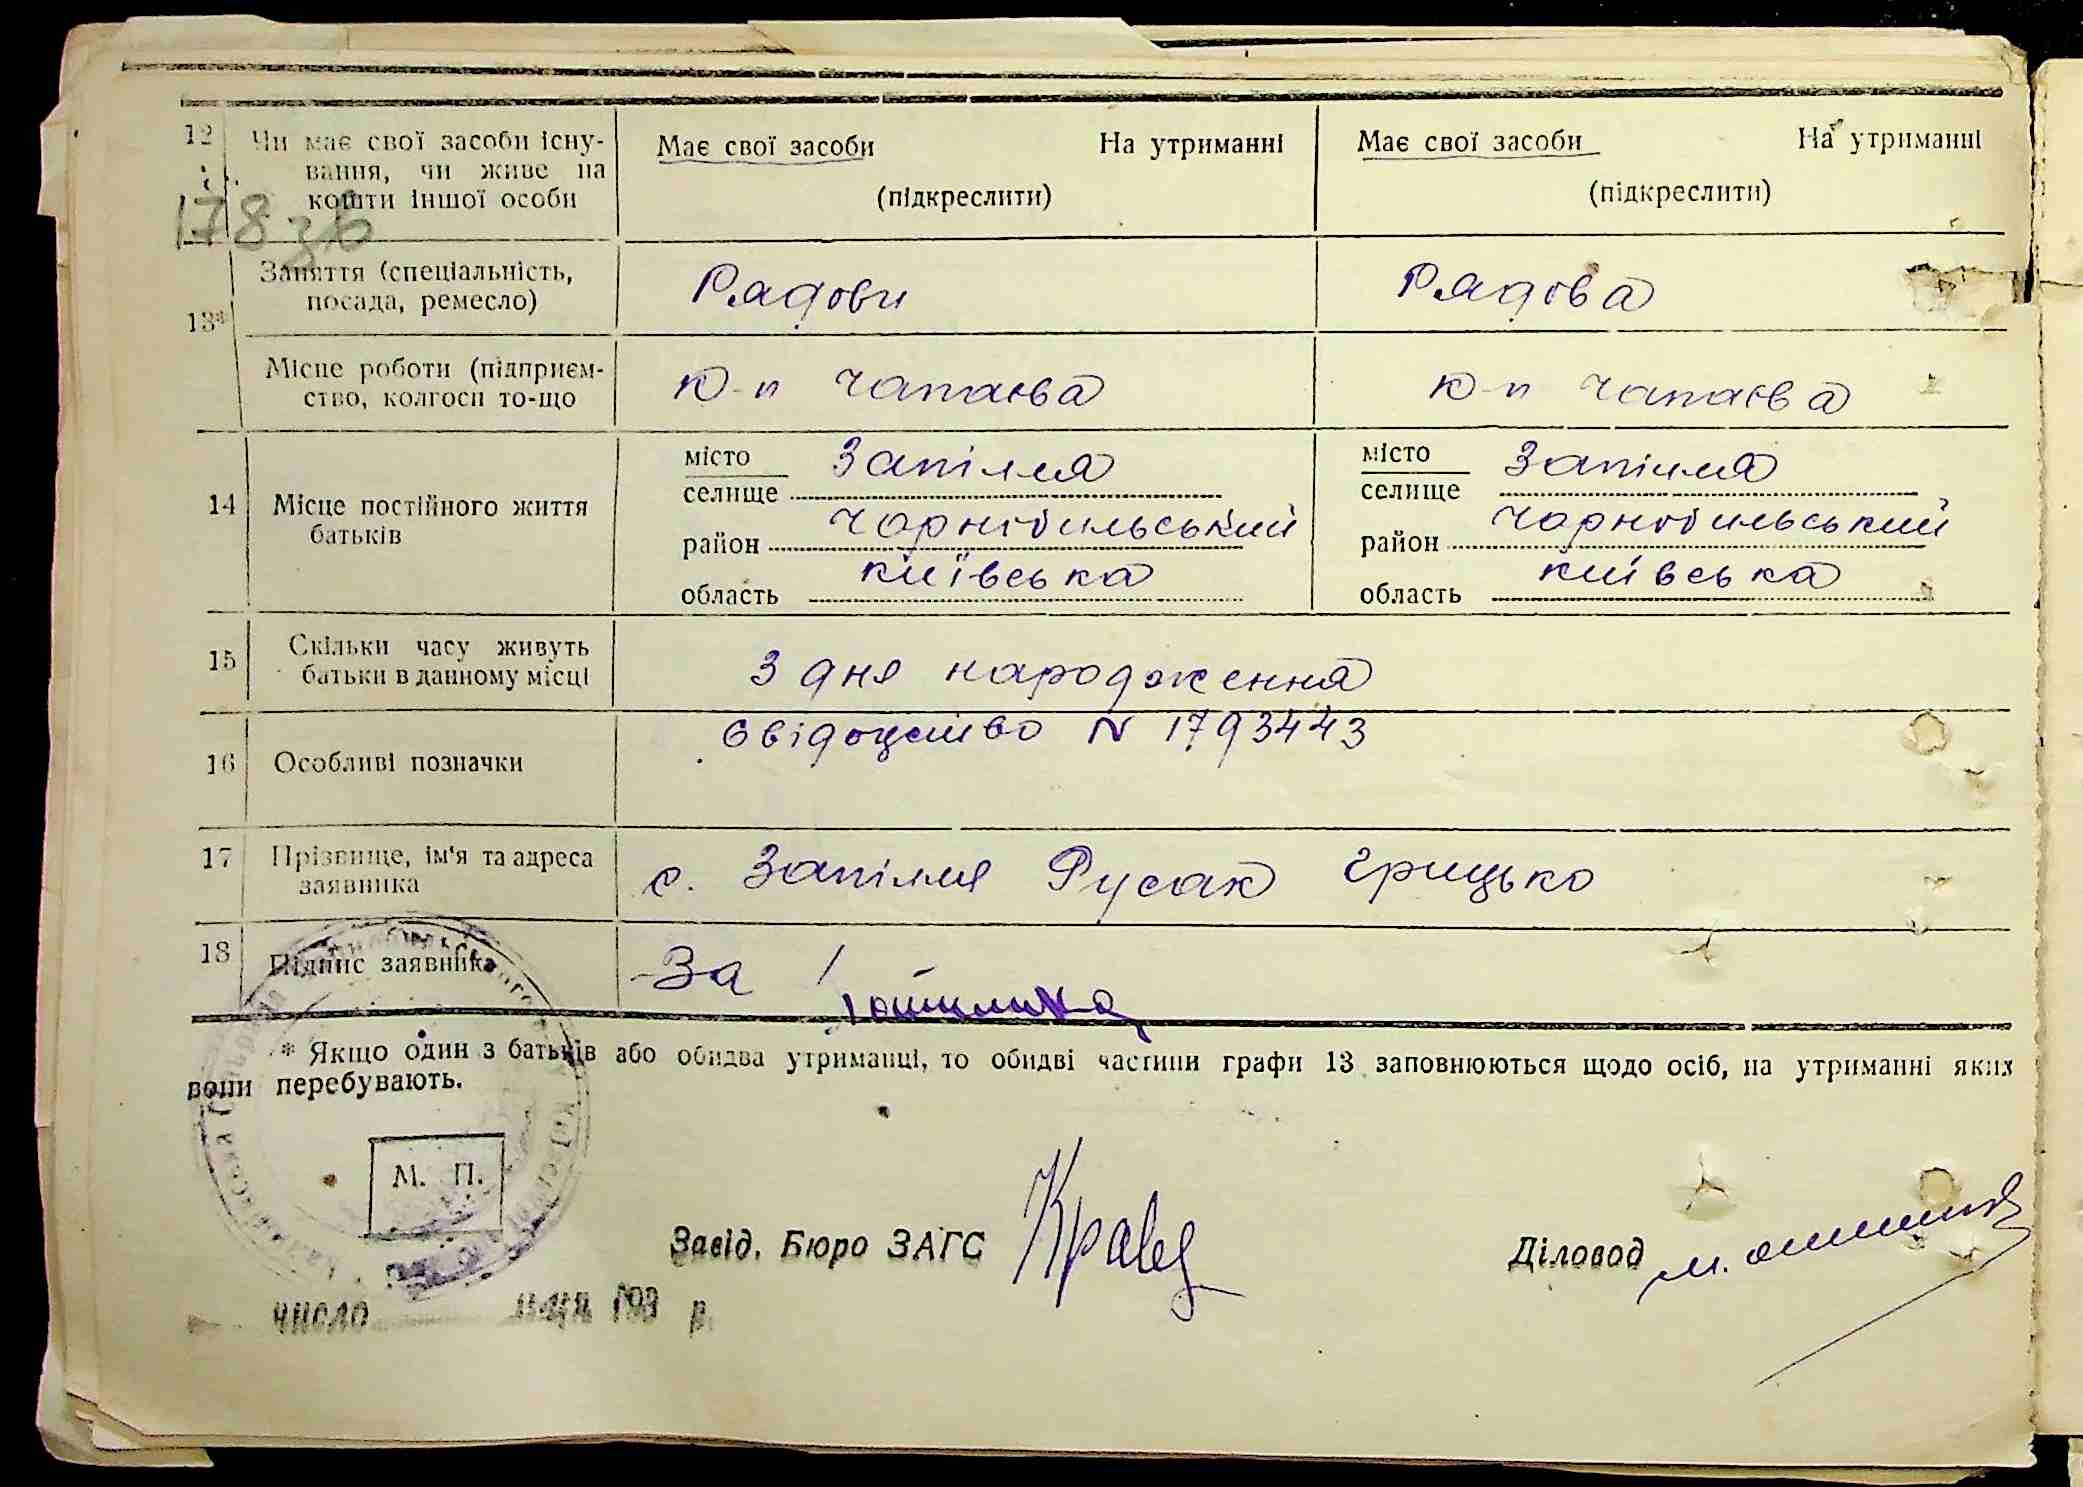 12 Чи має свої засоби існу-
вання, чи живе на
кошти іншої особи
Має свої засоби На утриманні
(підкреслити)
Має свої засоби На утриманні
(підкреслити)
178зв
13* Заняття (спеціальність,
посада, ремесло)
Рядови
Рядова
Місце роботи (підприєм-
ство, колгосп то-що
к-п Чапаєва
к-п Чапаєва
14 Місце постійного життя
батьків
місто Запілля
селище
район Чорнобильський
область київська
місто Запілля
селище
район Чорнобильський
область київська
15 Скільки часу живуть
батьки в данному місці
З дня народження
16 Особливі позначки
Свідоцтво N 1793443
17 Прізвище, ім'я та адреса
заявника
с. Запілля Русак Грицько
18 Підпис заявника
За
* Якщо один з батьків або обидва утриманці, то обидві частини графи 13 заповнюються щодо осіб, на утриманні яких
вони перебувають.
М. П.
Завід. Бюро ЗАГС
Діловод
число м-ця 193 р.